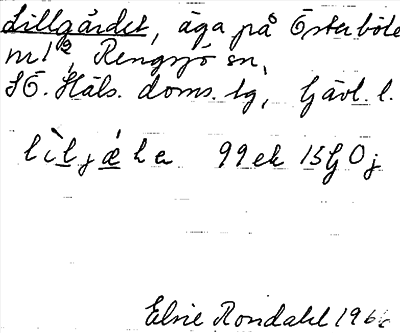 Lillgårdet, äga på Österböle
nr 1², Rengsjö sn,
SÖ. Häls. doms. lg, Gävl. l.
lìljǽha 99ek 15G0j
Elsie Rondahl 1966